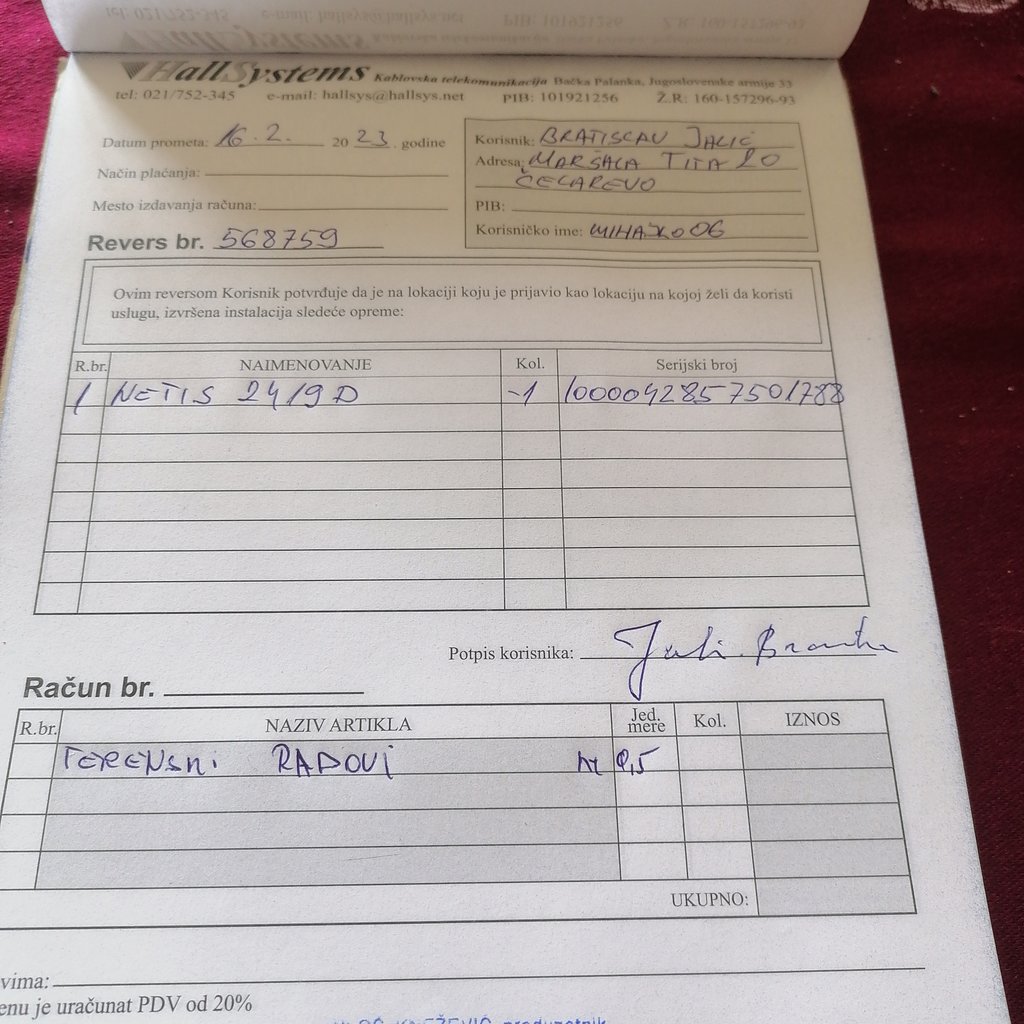 HallSystems Kablovska telekomunikacija Bačka Palanka, Jugoslovenske armije 33
tel: 021/752-345 e-mail: hallsys@hallsys.net PIB: 101921256 Ž.R: 160-157296-93
Datum prometa: 16.2. 2023. godine
Način plaćanja:
Mesto izdavanja računa:
Revers br. 568759
Korisnik: BRATISLAV JALIĆ
Adresa: MARŠALA TITA 20
ČELAREVO
PIB:
Korisničko ime: MIHAJLO06
Ovim reversom Korisnik potvrđuje da je na lokaciji koju je prijavio kao lokaciju na kojoj želi da koristi
uslugu, izvršena instalacija sledeće opreme:
R.br. NAIMENOVANJE Kol. Serijski broj
1 NETIS 2419D -1 1000042857501788
Potpis korisnika:
Račun br.
R.br. NAZIV ARTIKLA Jed. mere Kol. IZNOS
TERENSKI RADOVI 0,5
UKUPNO:
vima:
enu je uračunat PDV od 20%